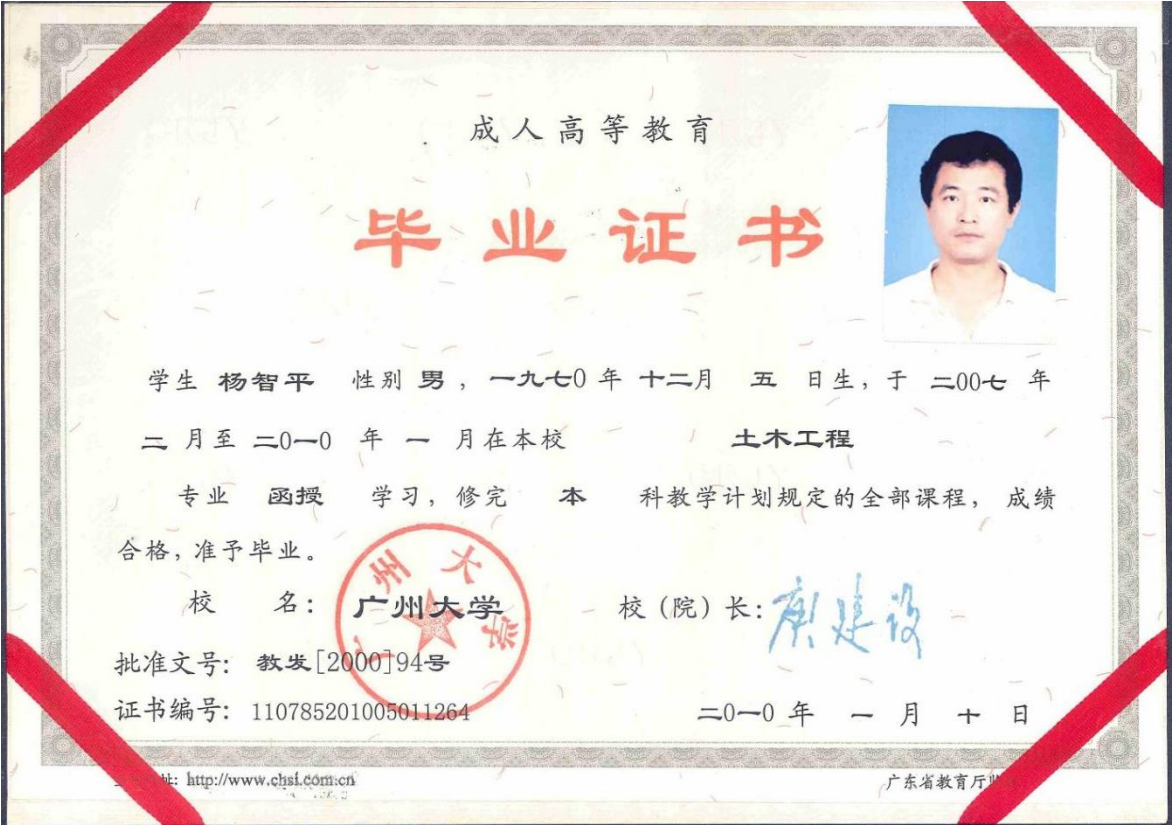 成人高等教育
毕业证书
学生 杨智平 性别 男 ，一九七0 年 十二月 五 日生，于 二00七 年
二 月至 二0一0 年 一 月在本校 土木工程
专业 函授 学习，修完 本 科教学计划规定的全部课程， 成绩
合格，准予毕业。
校 名： 广州大学 校（院）长：庾建设
广州大学
批准文号： 教发[2000]94号
证书编号： 110785201005011264 二0一0 年 一 月 十 日
址：http://www.chsi.com.cn 广东省教育厅